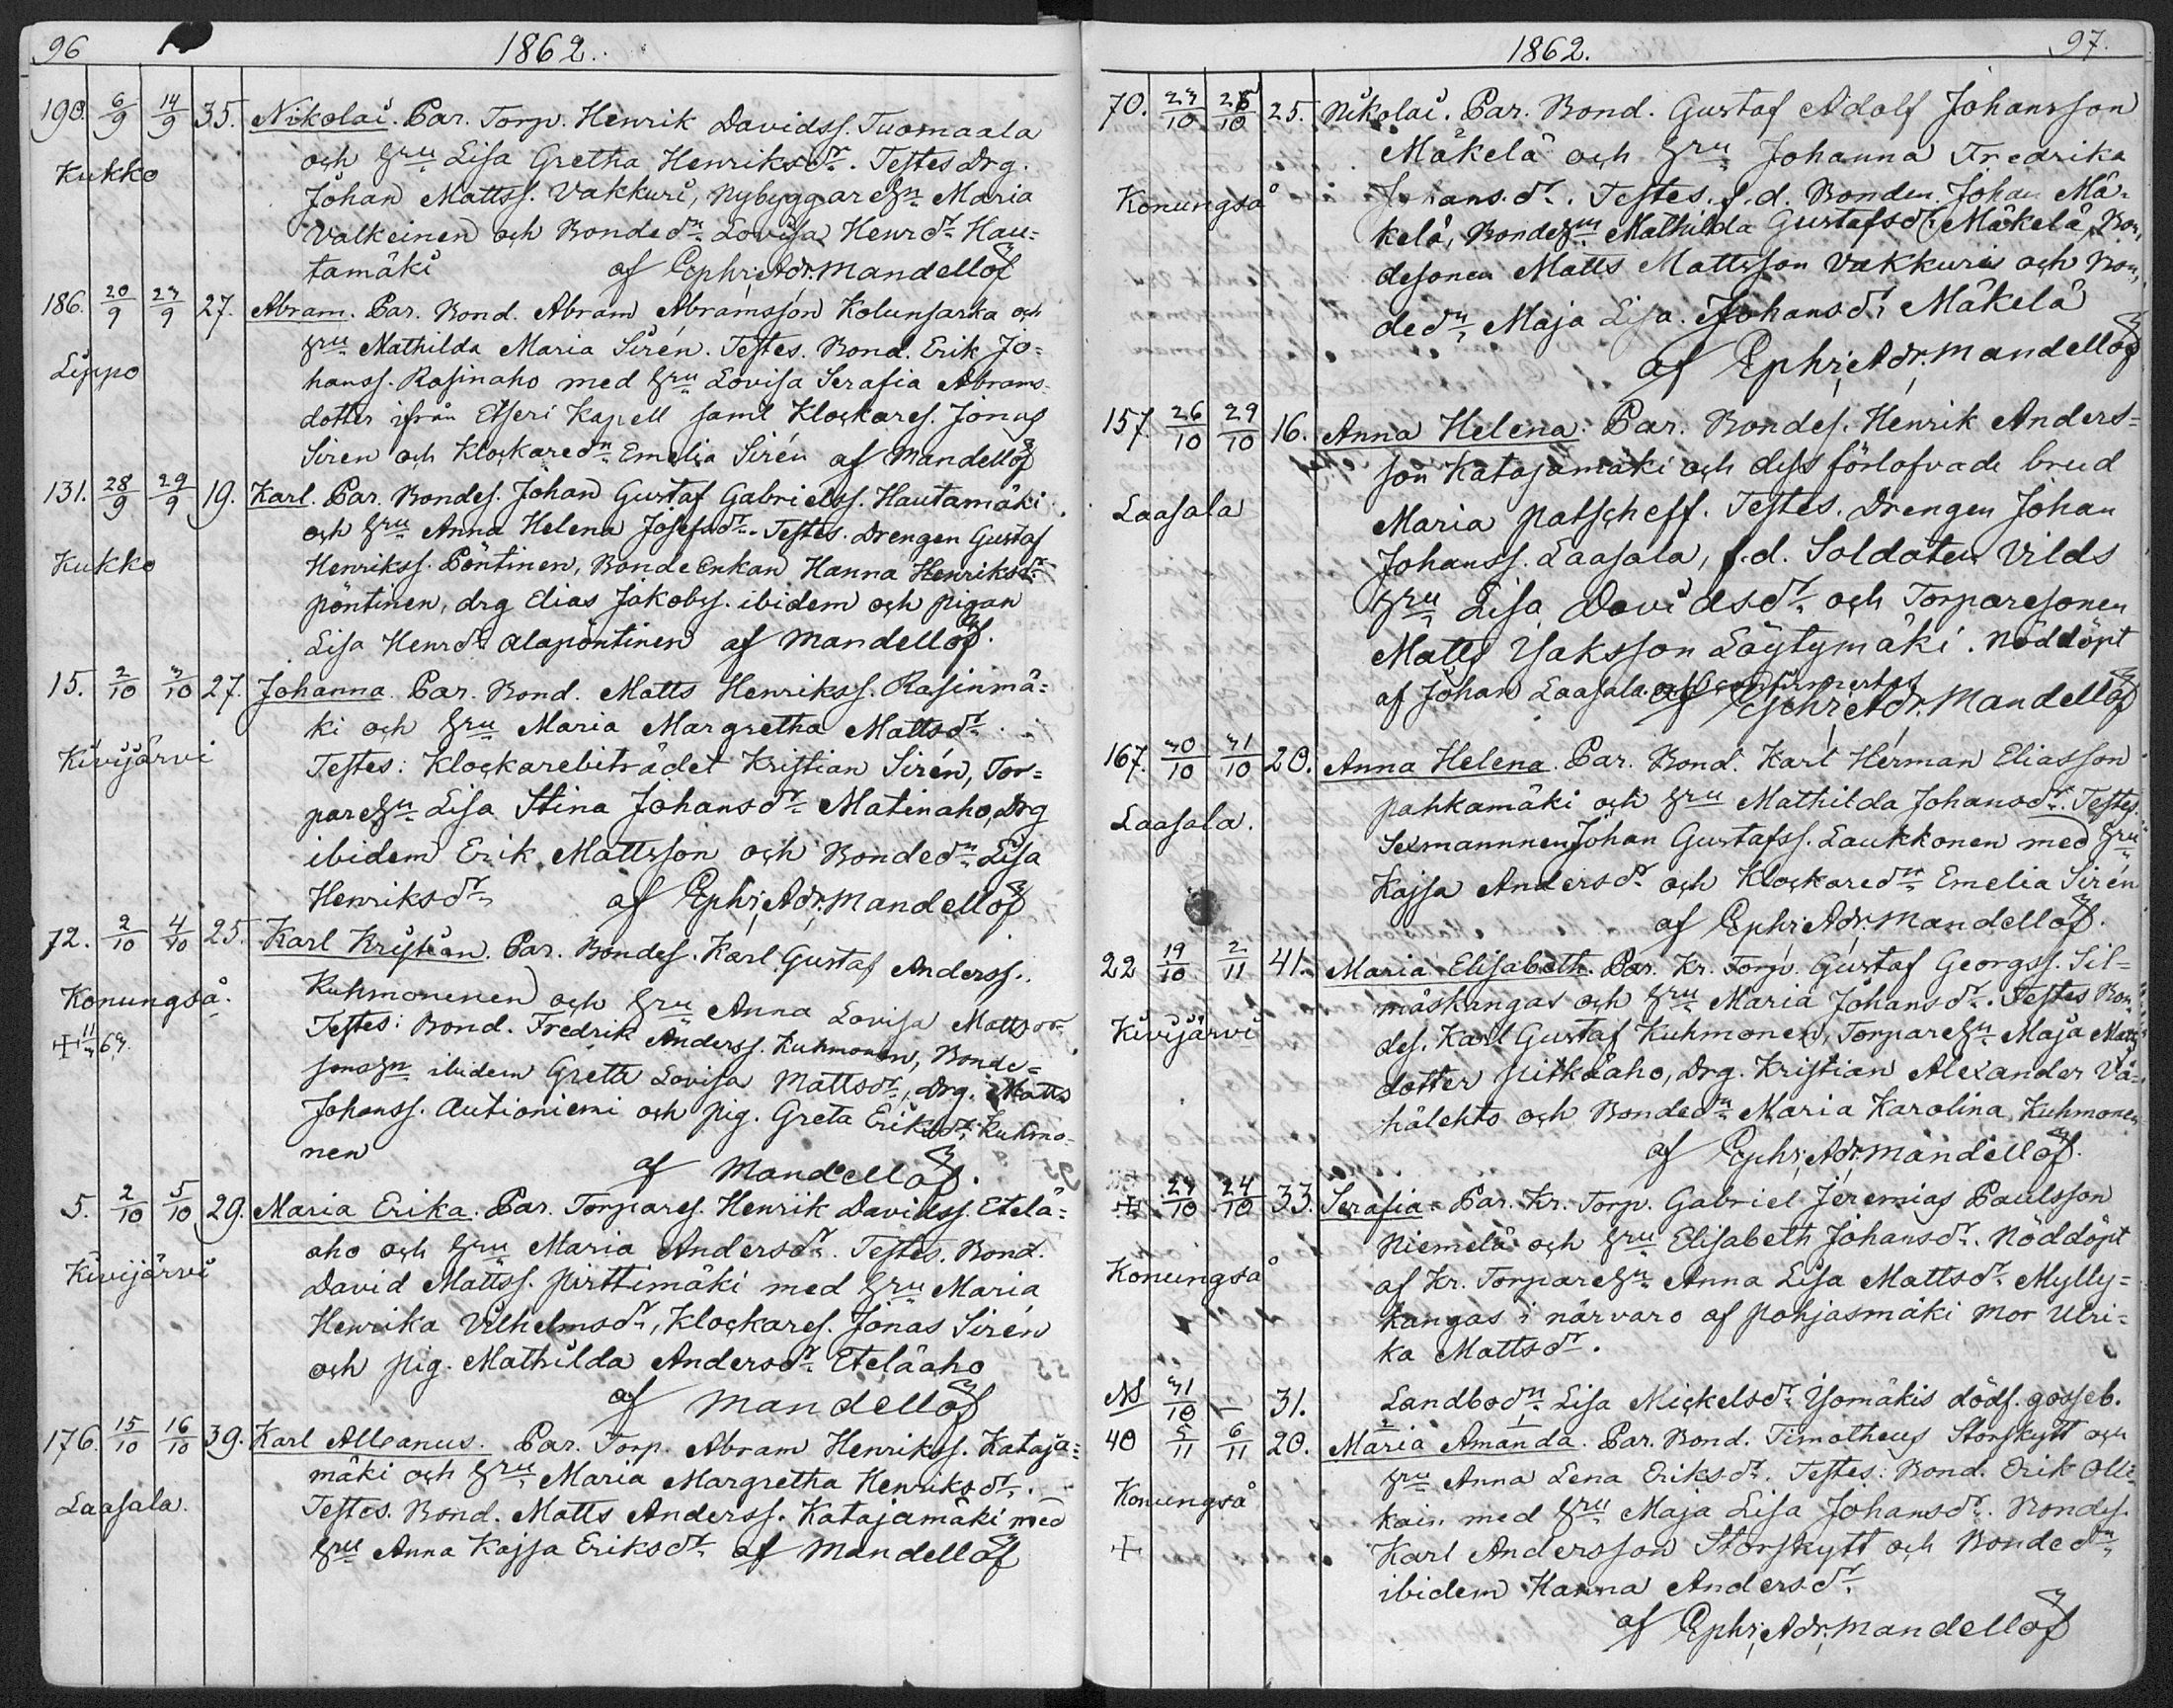 96
1862.
190. 6/9 14/9 35. Nikolai. Par. Torp. Henrik Davidss. Tuomaala
och hru Lisa Gretha Henriksdr. Testes Drg.
Kukko
Johan Mattss. Vakkuri, Nybyggarehn Maria
Valkeinen och Bondedn Lovisa Henrdr Hau=
tamäki af Ephr: Adr: Mandellöf
186. 20/9 23/9 27. Abram. Par. Bond. Abram Abramsson Kolunsarka och
hru Mathilda Maria Sirén. Testes. Bond. Erik Jo=
Leppo
hanss. Rasinaho med hru Lovisa Serafia Abrams=
dotter ifrån Etseri Kapell samt Klockares. Jonas
Siren och Klockaredn Emelia Sirén af Mandellöf
131. 28/9 29/9 19. Karl. Par. Bondes. Johan Gustaf Gabrielss. Hautamäki
och hru Anna Helena Josefsdr. Testes. Drengen Gustaf
Kukko
Henrikss. Pöntinen, Bonde Enkan Hanna Henriksdr
Pöntinen, drg Elias Jakobss. ibidem och pigan
Lisa Henrdr Alapöntinen af Mandellöf.
15. 2/10 3/10 27. Johanna. Par. Bond. Matts Henrikss. Rasinmä=
ki och hru Maria Margretha Mattsdr.
Kivijärvi
Testes: Klockarebiträdet Kristian Sirén, Tor=
parehn Lisa Stina Johansdr Matinaho, Drg
ibidem Erik Mattsson och Bondedn Lisa
Henriksdr af Ephr: Adr: Mandellöf
72. 2/10 4/10 25. Karl Kristian. Par. Bondes. Karl Gustaf Anderss.
Konungså.
Kuhmonenen och hru Anna Lovisa Mattsdr.
Testes: Bond. Fredrik Anderss. Kuhmonen, Bonde=
+ 11/3 63.
sonshn ibidem Greta Lovisa Mattsdr, Drg. Matts
Johanss. Autioniemi och pig. Greta Eriksdr Kuhmo=
nen
af Mandellöf.
5. 2/10 5/10 29. Maria Erika. Par. Torpares. Henrik Davidss. Etelä=
aho och hru Maria Andersdr. Testes. Bond.
Kivijärvi
David Mattss. Pirttimäki med hru Maria
Henrika Vilhelmsdr, Klockares. Jonas Sirén
och pig. Mathilda Andersdr Eteläaho
af Mandellöf
176. 15/10 16/10 39. Karl Albanus. Par. Torp. Abram Henrikss. Kataja=
mäki och hru Maria Margretha Henriksdr.
Laasala.
Testes. Bond. Matts Anderss. Katajamäki med
hru Anna Kajsa Eriksdr af Mandellöf
1862.
97.
70. 23/10 25/10 25. Nikolai. Par. Bond. Gustaf Adolf Johansson
Mäkelä och hru Johanna Fredrika
Konungså
Johansdr. Testes. f.d. Bonden Johan Mä=
kelä, Bondehn Mathilda Gustafsdr Mäkelä, Bon=
desonen Matts Mattsson Vakkuris och Bon=
dedn Maja Lisa Johansdr Mäkelä
af Ephr: Adr: Mandellöf
157. 26/10 29/10 16. Anna Helena. Par. Bondes. Henrik Anders=
son Katajamäki och dess förlofvade brud
Laasala
Maria Patscheff. Testes. Drengen Johan
Johanss. Laasala, f.d. Soldaten Vilds
hru Lisa Davidsdr och Torparesonen
Matts Isaksson Löytymäki. Nöddöpt
af Johan Laasala och Confirmertas
af Ephr: Adr: Mandellöf
167. 30/10 31/10 20. Anna Helena. Par. Bond. Karl Herman Eliasson
Pahkamäki och hru Mathilda Johansdr. Testes.
Laasala.
Sexmannnen Johan Gustafss. Laukkonen med hru
Kajsa Andersdr och Klockaredn Emelia Sirén
af Ephr: Adr: Mandellöf.
22 19/10 2/11 41. Maria Elisabeth. Par. Kr. Torp. Gustaf Georgss. Sil=
måskangas och hru Maria Johansdr. Testes Bon=
Kivijärvi
des. Karl Gustaf Kuhmonen, Torparehn Maja Matts
dotter Pitkäaho, Drg. Kristian Alexander Vä=
hälehto och Bondedn Maria Karolina Kuhmonen
af Ephr: Adr: Mandellöf.
+ 23/10 24/10 33. Serafia. Par. Kr. Torp. Gabriel Jeremias Paulsson
Niemelä och hru Elisabeth Johansdr. Nöddöpt
Konungså
af Kr. Torparehn Anna Lisa Mattsdr Mylly=
kangas i närvaro af Pohjasmäki mor Ulri=
ka Mattsdr.
NS 31/10 — 31. Landbodn Lisa Mickelsdr Isomäkis dödf. gosseb.
40 5/11 6/11 20. Maria Amanda. Par. Bond. Timotheus Storskytt och
hru Anna Lena Eriksdr. Testes: Bond. Erik Olli=
Konungså
kain med hru Maja Lisa Johansdr. Bondes.
+
Karl Andersson Storskytt och Bondedn
ibidem Hanna Andersdr.
af Ephr: Adr: Mandellöf